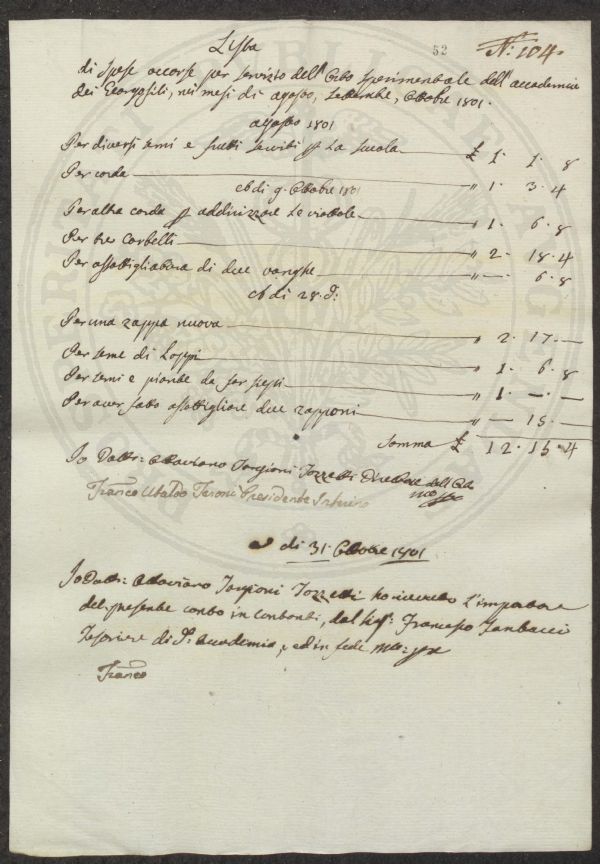 Lista
52
N.º 104.
di Spese occorse per servizio dell' Orto Sperimentale dell' accademia
dei Georgofili, nei mesi di agosto, Settembre, Ottobre 1801.
agosto 1801
Per diversi semi e frutti serviti p La Scuola £ 1. 1. 8
Per corda " 1. 3. 4
a di 9. Ottobre 1801
Per altra corda p addirizzare Le viottole " 1. 6. 8
Per tre Corbelli " 2. 18. 4
Per assottigliatura di due vanghe " — 6. 8
a di 28. d:
Per una zappa nuova " 2. 17. —
Per seme di Loppi " 1. 6. 8
Per semi e piante da far siepi " 1. — —
Per aver fatto assottigliare due zapponi — 15. —
Somma £ 12. 15. 4
Io Dott: Ottaviano Targioni Tozzetti Direttore dell' Orto
mo ppa
Franco Ubaldo Feroni Presidente Interino
a di 31. Ottobre 1801
Io Dott: Ottaviano Targioni Tozzetti ho ricevuto L'importare
del presente conto in contanti, dal Sigr: Francesco Tartacci
Tesoriere di d: Accademia, ed in fede mo: ppa
Franco